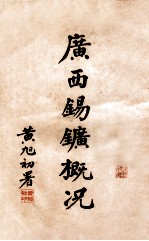 廣西錫鑛概况
黃旭初署